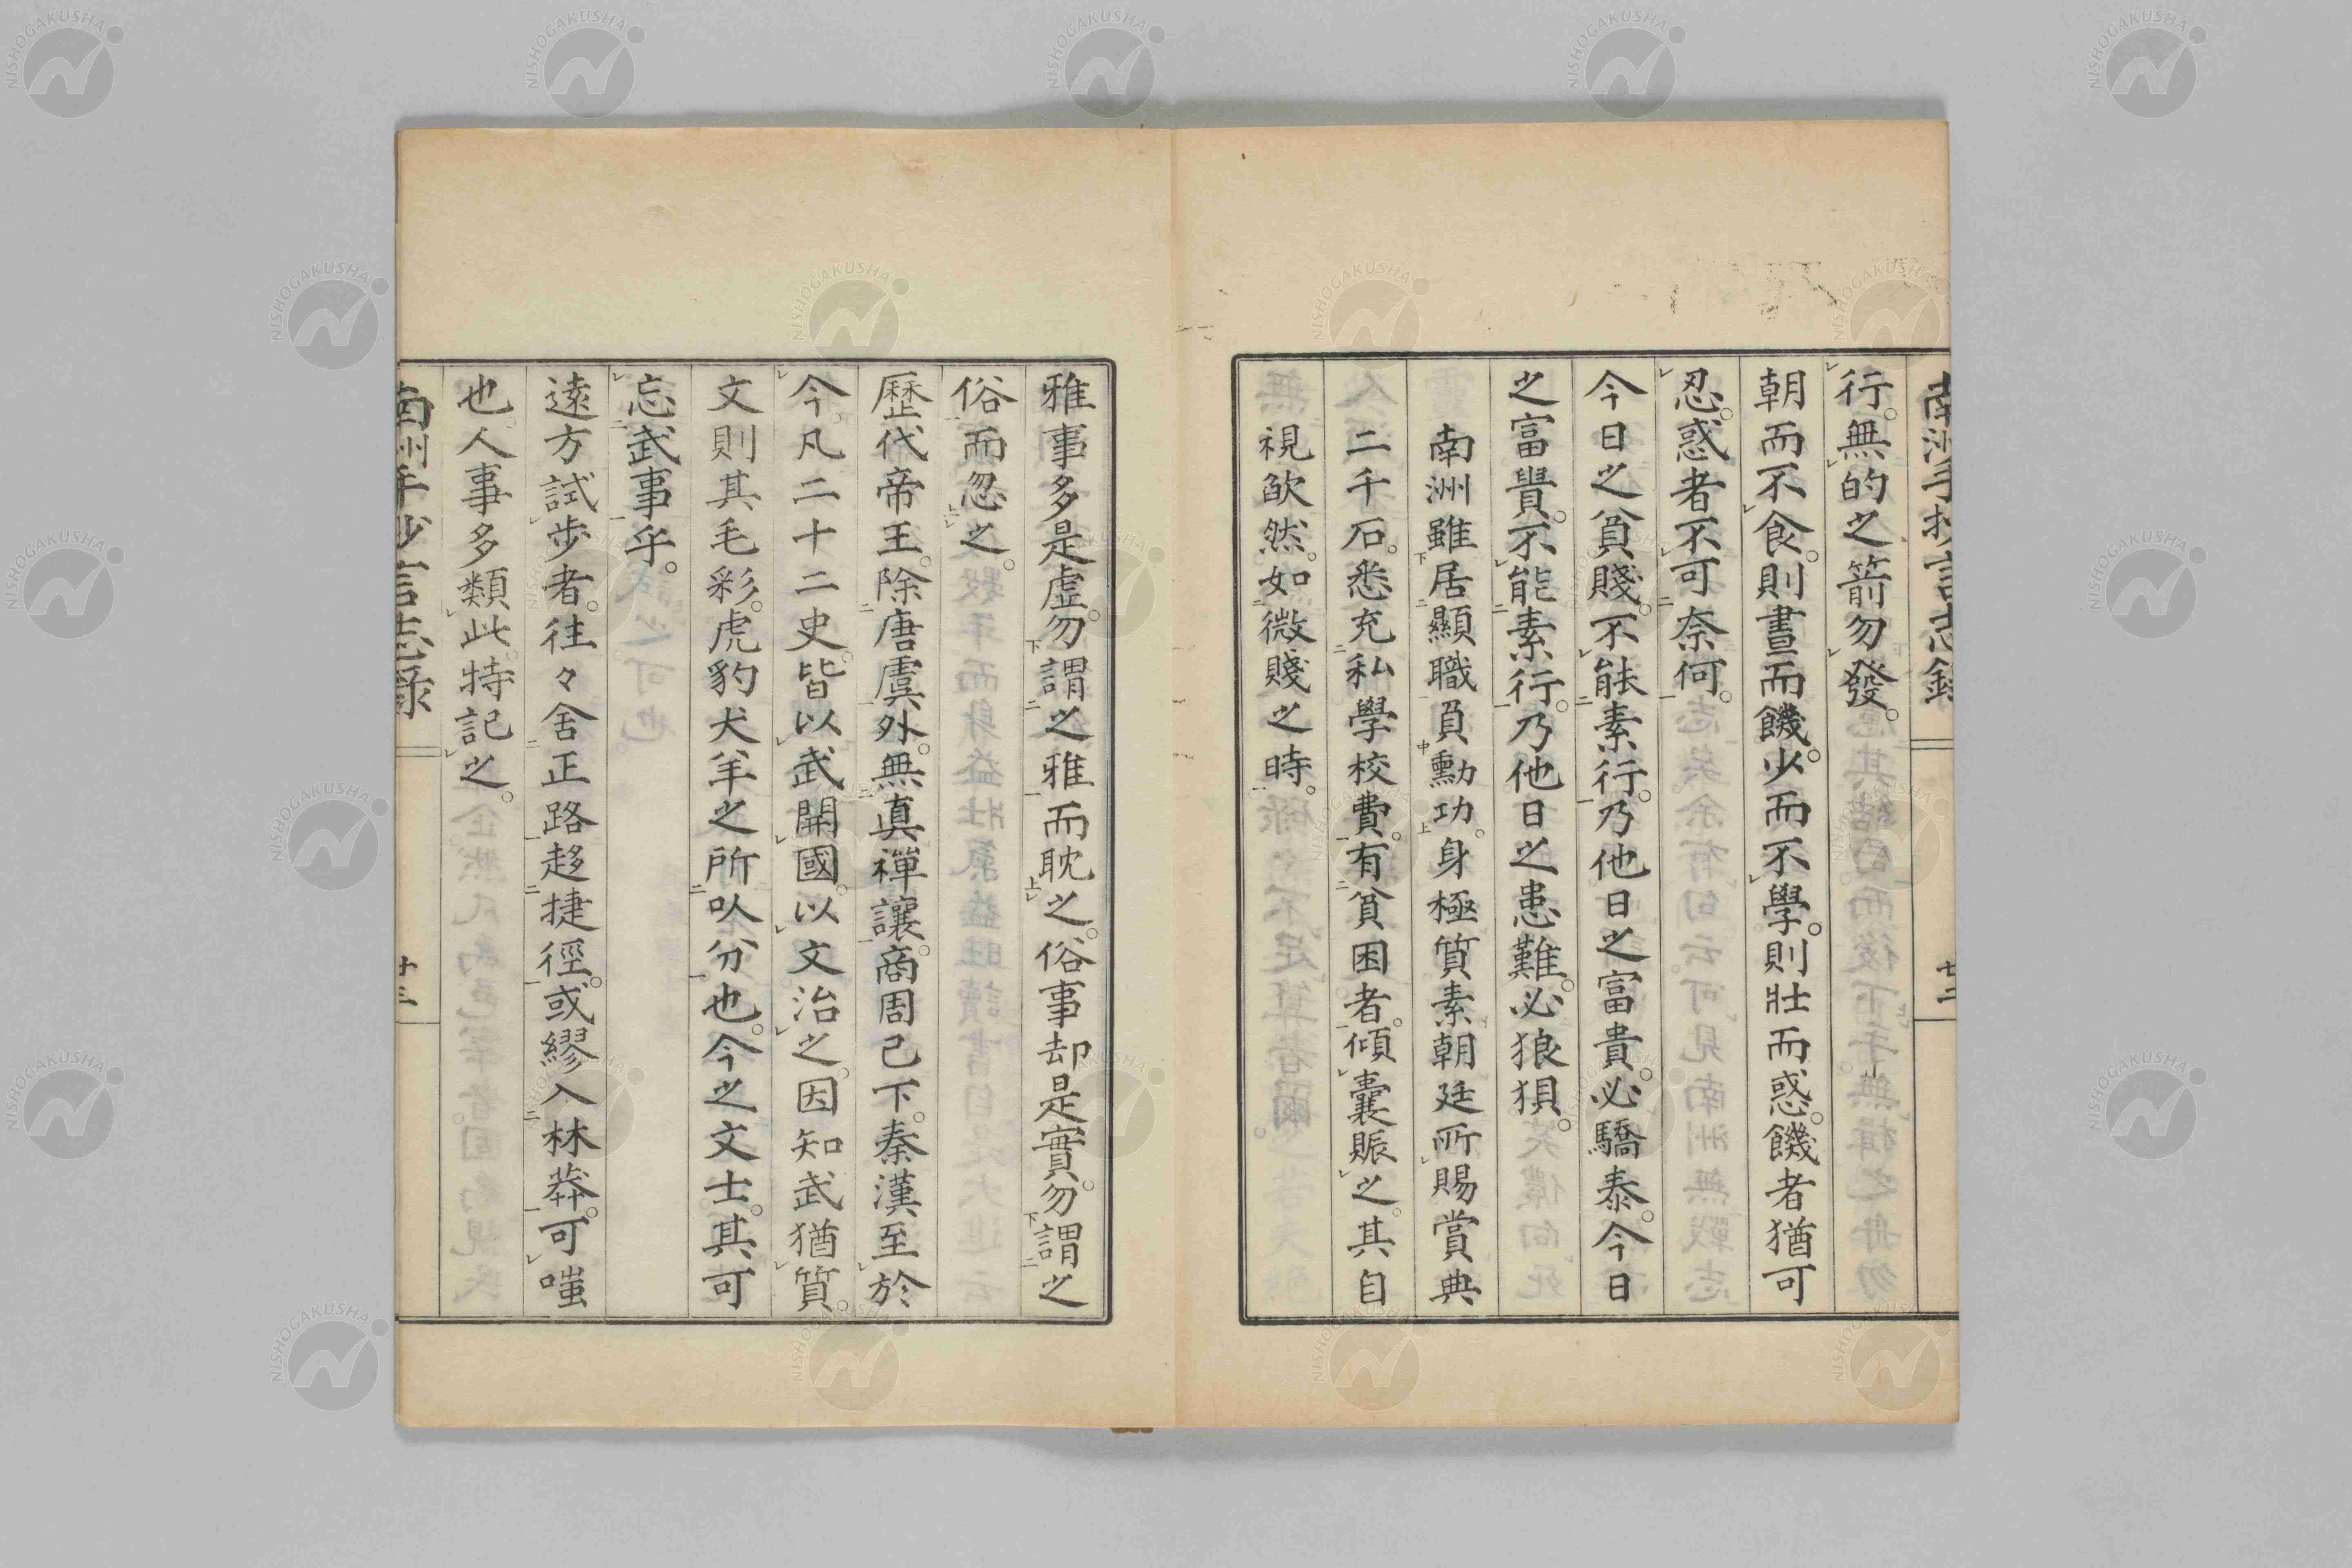 南洲手抄言志錄
行。無的之箭勿發。
朝而不食。則晝而饑。少而不學。則壯而惑。饑者猶可
忍。惑者不可奈何。
今日之貧賤。不能素行。乃他日之富貴。必驕泰。今日
之富貴。不能素行。乃他日之患難。必狼狽。
南洲雖居顯職負勳功。身極質素。朝廷所賜賞典
二千石。悉充私學校費。有貧困者。傾囊賑之。其自
視欿然。如微賤之時。
雅事多是虛。勿謂之雅而耽之。俗事却是實。勿謂之
俗而忽之。
歷代帝王。除唐虞外。無真禪讓。商周已下。秦漢至於
今。凡二十二史。皆以武開國。以文治之。因知武猶質。
文則其毛彩。虎豹犬羊之所以分也。今之文士。其可
忘武事乎。
遠方試步者。往々舍正路。趍捷徑。或繆入林莽。可嗤
也。人事多類此。特記之。
南洲手抄言志錄
NISHOGAKUSHA